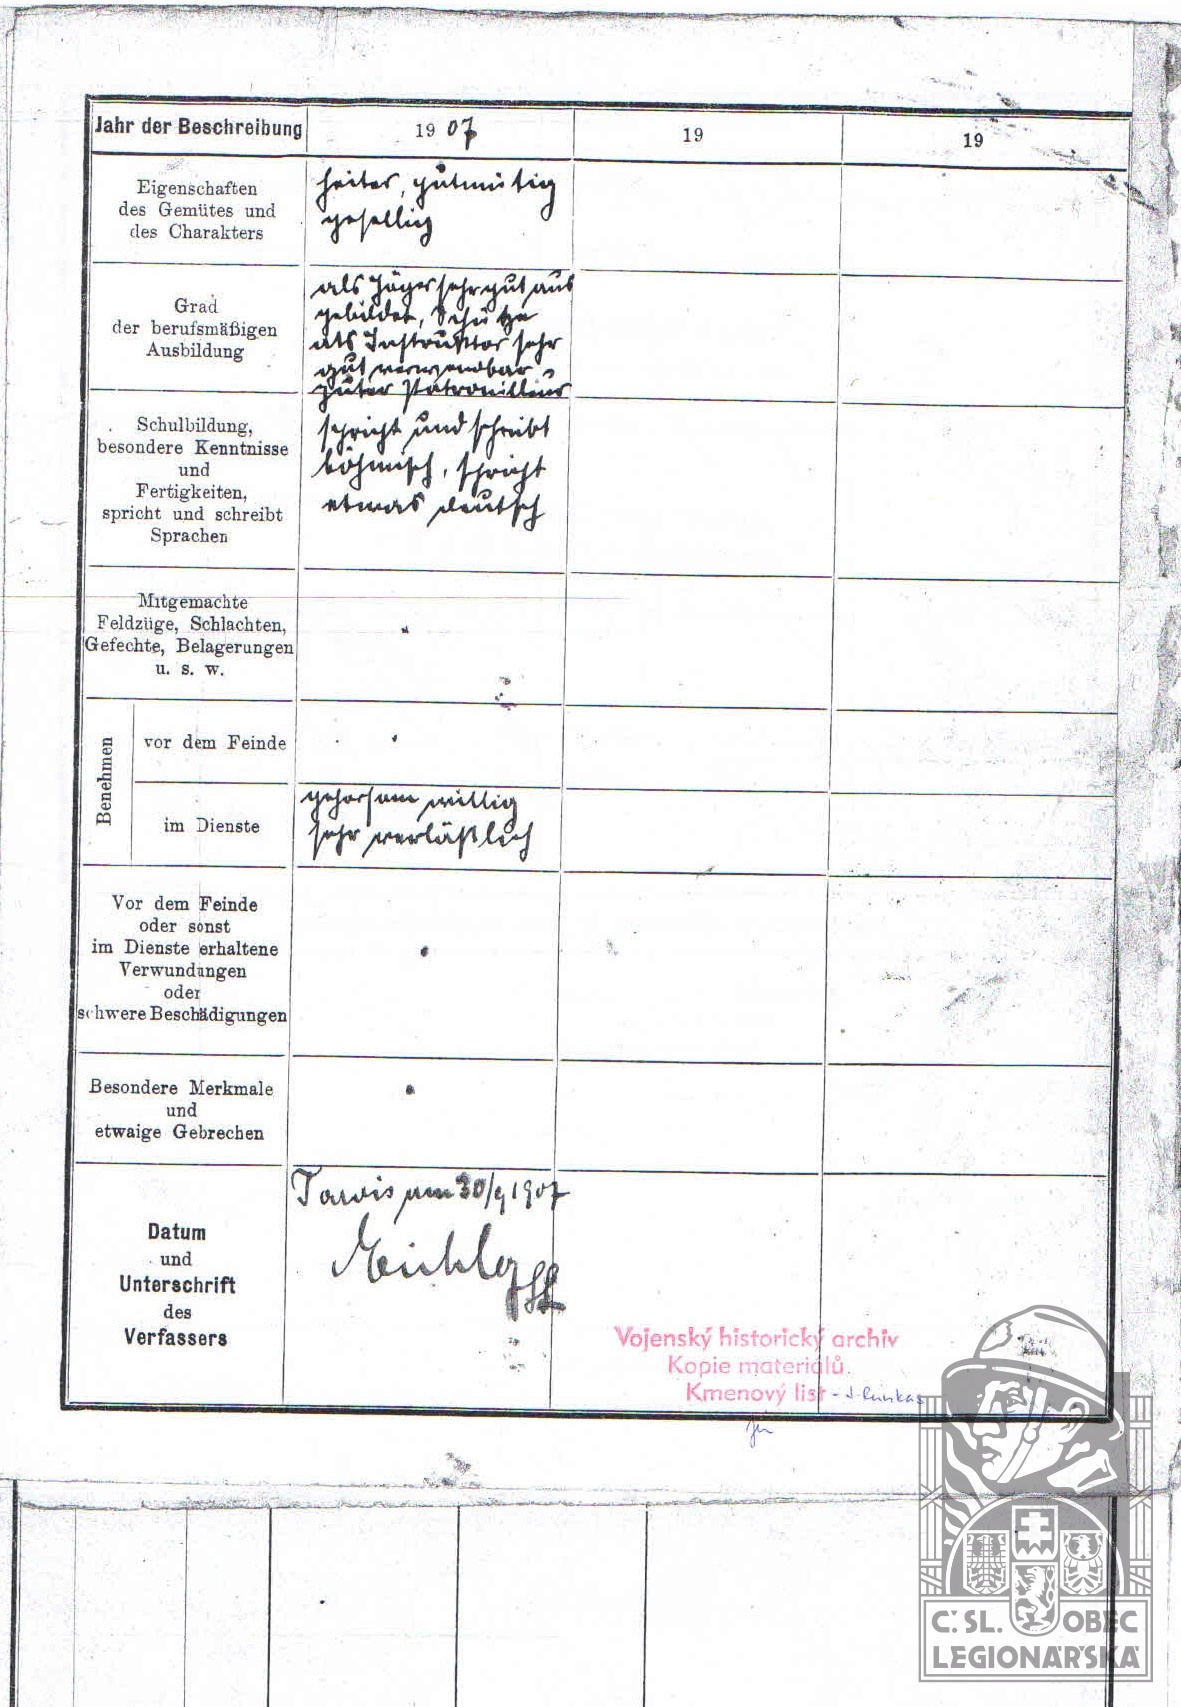 Jahr der Beschreibung
1907
19
19
Eigenschaften
des Gemütes und
des Charakters
heiter, gutmütig
gesellig
Grad
der berufsmäßigen
Ausbildung
als Jäger sehr gut aus
gebildet, Schütze
als Instruktor sehr
gut verwendbar
guter Patrouilleur
Schulbildung,
besondere Kenntnisse
und
Fertigkeiten,
spricht und schreibt
Sprachen
spricht und schreibt
böhmisch, spricht
etwas deutsch
Mitgemachte
Feldzüge, Schlachten,
Gefechte, Belagerungen
u. s. w.
Benehmen
vor dem Feinde
im Dienste
gehorsam willig
sehr verläßlich
Vor dem Feinde
oder sonst
im Dienste erhaltene
Verwundungen
oder
schwere Beschädigungen
Besondere Merkmale
und
etwaige Gebrechen
Datum
und
Unterschrift
des
Verfassers
Tarvis am 30/9 1907
Vojenský historický archiv
Kopie materiálů.
Kmenový list -
Č. SL. OBEC
LEGIONÁŘSKÁ